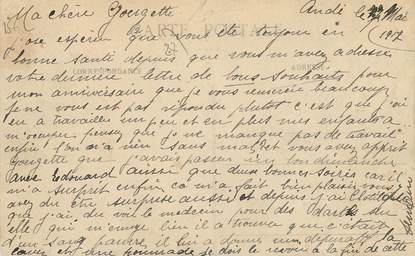 Ma chère Georgette
Andé le Mai
1917
CARTE POSTALE
J'ose espérer que vous ête toujour en
bonne santé depuis que vous m'avez adressé
CORRESPONDANCE
ADRESSE
votre dernière lettre de bons souhaits pour
mon anniversaire que je vous remercie beaucoup
Je ne vous est pas répondu plutot c'est que j'ai
eu a travaillé un peu et en plus mes enfants a
m'occuper pensez que je ne manque pas de travail
enfin l'on a rien sans mal et vous avez apprit
Georgette que j'avais passer un bon dimanche
avec Edouard aussi que deux bonnes soirés car il
m'a surprit enfin ca m'a fait bien plaisir vous
avez du être surprise aussi et depuis j'ai Clotilde
que j'ai du voir le medecin pour des dartres du
elle qui m'ennuye bien il a trouver que c'était
d'un sang pauvre il lui a donné un dépuratif
laver et une pommade je dois le revoir à la fin de cette